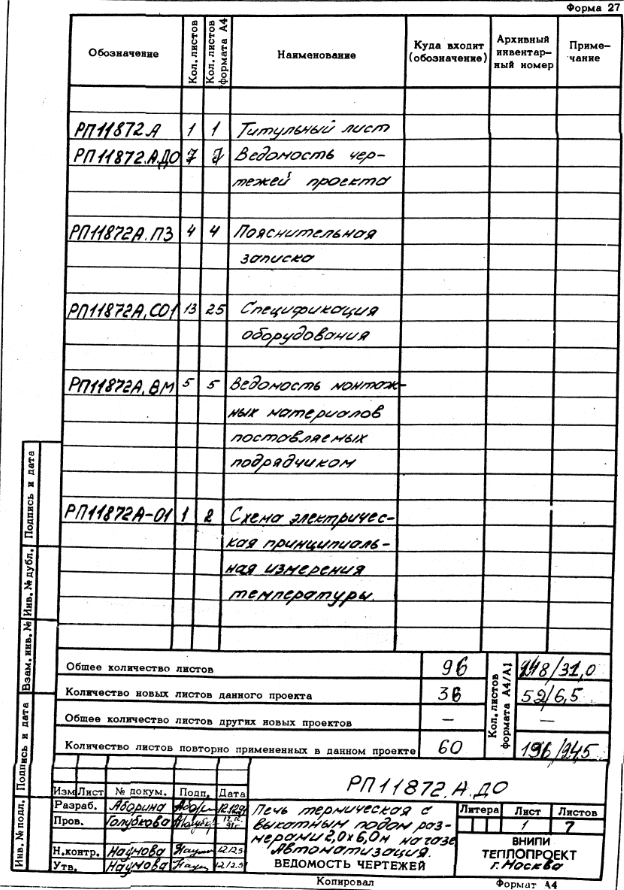 Форма 27
Обозначение
Кол. листов
Кол. листов формата А4
Наименование
Куда входит (обозначение)
Архивный инвентарный номер
Примечание
РП11872.А 1 1 Титульный лист
РП11872.А.ДО 7 7 Ведомость чер-
тежей проекта
РП11872А.ПЗ 4 4 Пояснительная
записка
РП11872А.СО1 13 25 Спецификация
оборудования
РП11872А.ВМ 5 5 Ведомость монтаж-
ных материалов
поставляемых
подрядчиком
РП11872А-01 1 2 Схема электричес-
кая принципиаль-
ная измерения
температуры.
Общее количество листов 96
Количество новых листов данного проекта 36 52/6,5
Общее количество листов других новых проектов — —
Количество листов повторно примененных в данном проекте 60 196/24,5
Кол. листов формата А4/А1
Инв. № подл.
Подпись и дата
Взам. инв. №
Инв. № дубл.
Подпись и дата
РП11872.А.ДО
Изм Лист № докум. Подп. Дата
Разраб. Аборина
Пров. Голубкова
Н.контр. Наумова
Утв. Наумова
Печь термическая с
выкатным подом раз-
мерами 2,0х6,0м на газе
Автоматизация.
ВЕДОМОСТЬ ЧЕРТЕЖЕЙ
Литера Лист Листов
1 7
ВНИПИ
ТЕПЛОПРОЕКТ
г. Москва
Копировал Формат А4